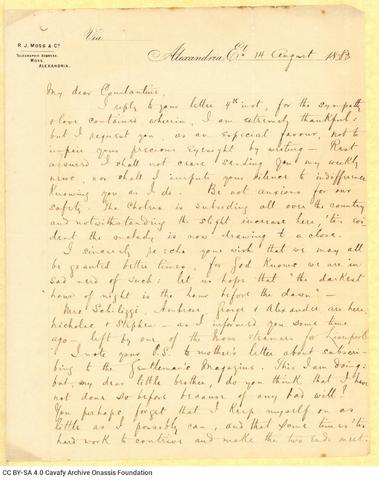 R. J. MOSS & Co.
TELEGRAPHIC ADDRESS,
MOSS,
ALEXANDRIA.
Via
Alexandria, Et. 14 August 1883
My dear Constantine,
I reply to your letter 4th inst, for the sympathy
& love contained wherein, I am extremely thankful;
but I request you, as an especial favour, not to
impair your precious eyesight by writing — Rest
assured I shall not cease sending you my weekly
news, nor shall I impute your silence to indifference
knowing you as I do. Be not anxious for our
safety. The Cholera is subsiding all over the country
and notwithstanding the slight increase here, 'tis evi
dent the malady is now drawing to a close.
I sincerely re-echo your wish that we may all
be granted better times, for God knows we are in
sad need of such: let us hope that "the darkest
hour of night is the hour before the dawn" —
Mrs Salilizzi, Ambrose, George & Alexander are here.
Nicholas & Stephen — as I informed you some time
ago — left by one of the Moss steamers for Liverpool
I note your P.S. to mother's letter about subscri-
bing to the Gentleman's Magazine. This I am doing:
but my dear little brother, do you think that I have
not done so before because of any bad will?
You perhaps forget that I keep myself on as
little as I possibly can, and that some times 'tis
hard work to contrive and make the two ends meet.
CC BY-SA 4.0 Cavafy Archive Onassis Foundation